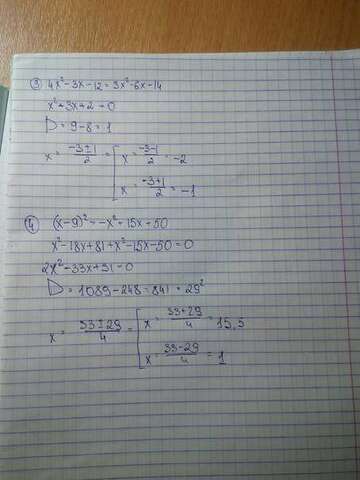 ③ 4x² - 3x - 12 = 3x² - 6x - 14
x² + 3x + 2 = 0
D = 9 - 8 = 1
x = (-3 ± 1)/2 = [ x = (-3 - 1)/2 = -2
x = (-3 + 1)/2 = -1
④ (x - 9)² = -x² + 15x + 50
x² - 18x + 81 + x² - 15x - 50 = 0
2x² - 33x + 31 = 0
D = 1089 - 248 = 841 = 29²
x = (33 ± 29)/4 = [ x = (33 + 29)/4 = 15,5
x = (33 - 29)/4 = 1